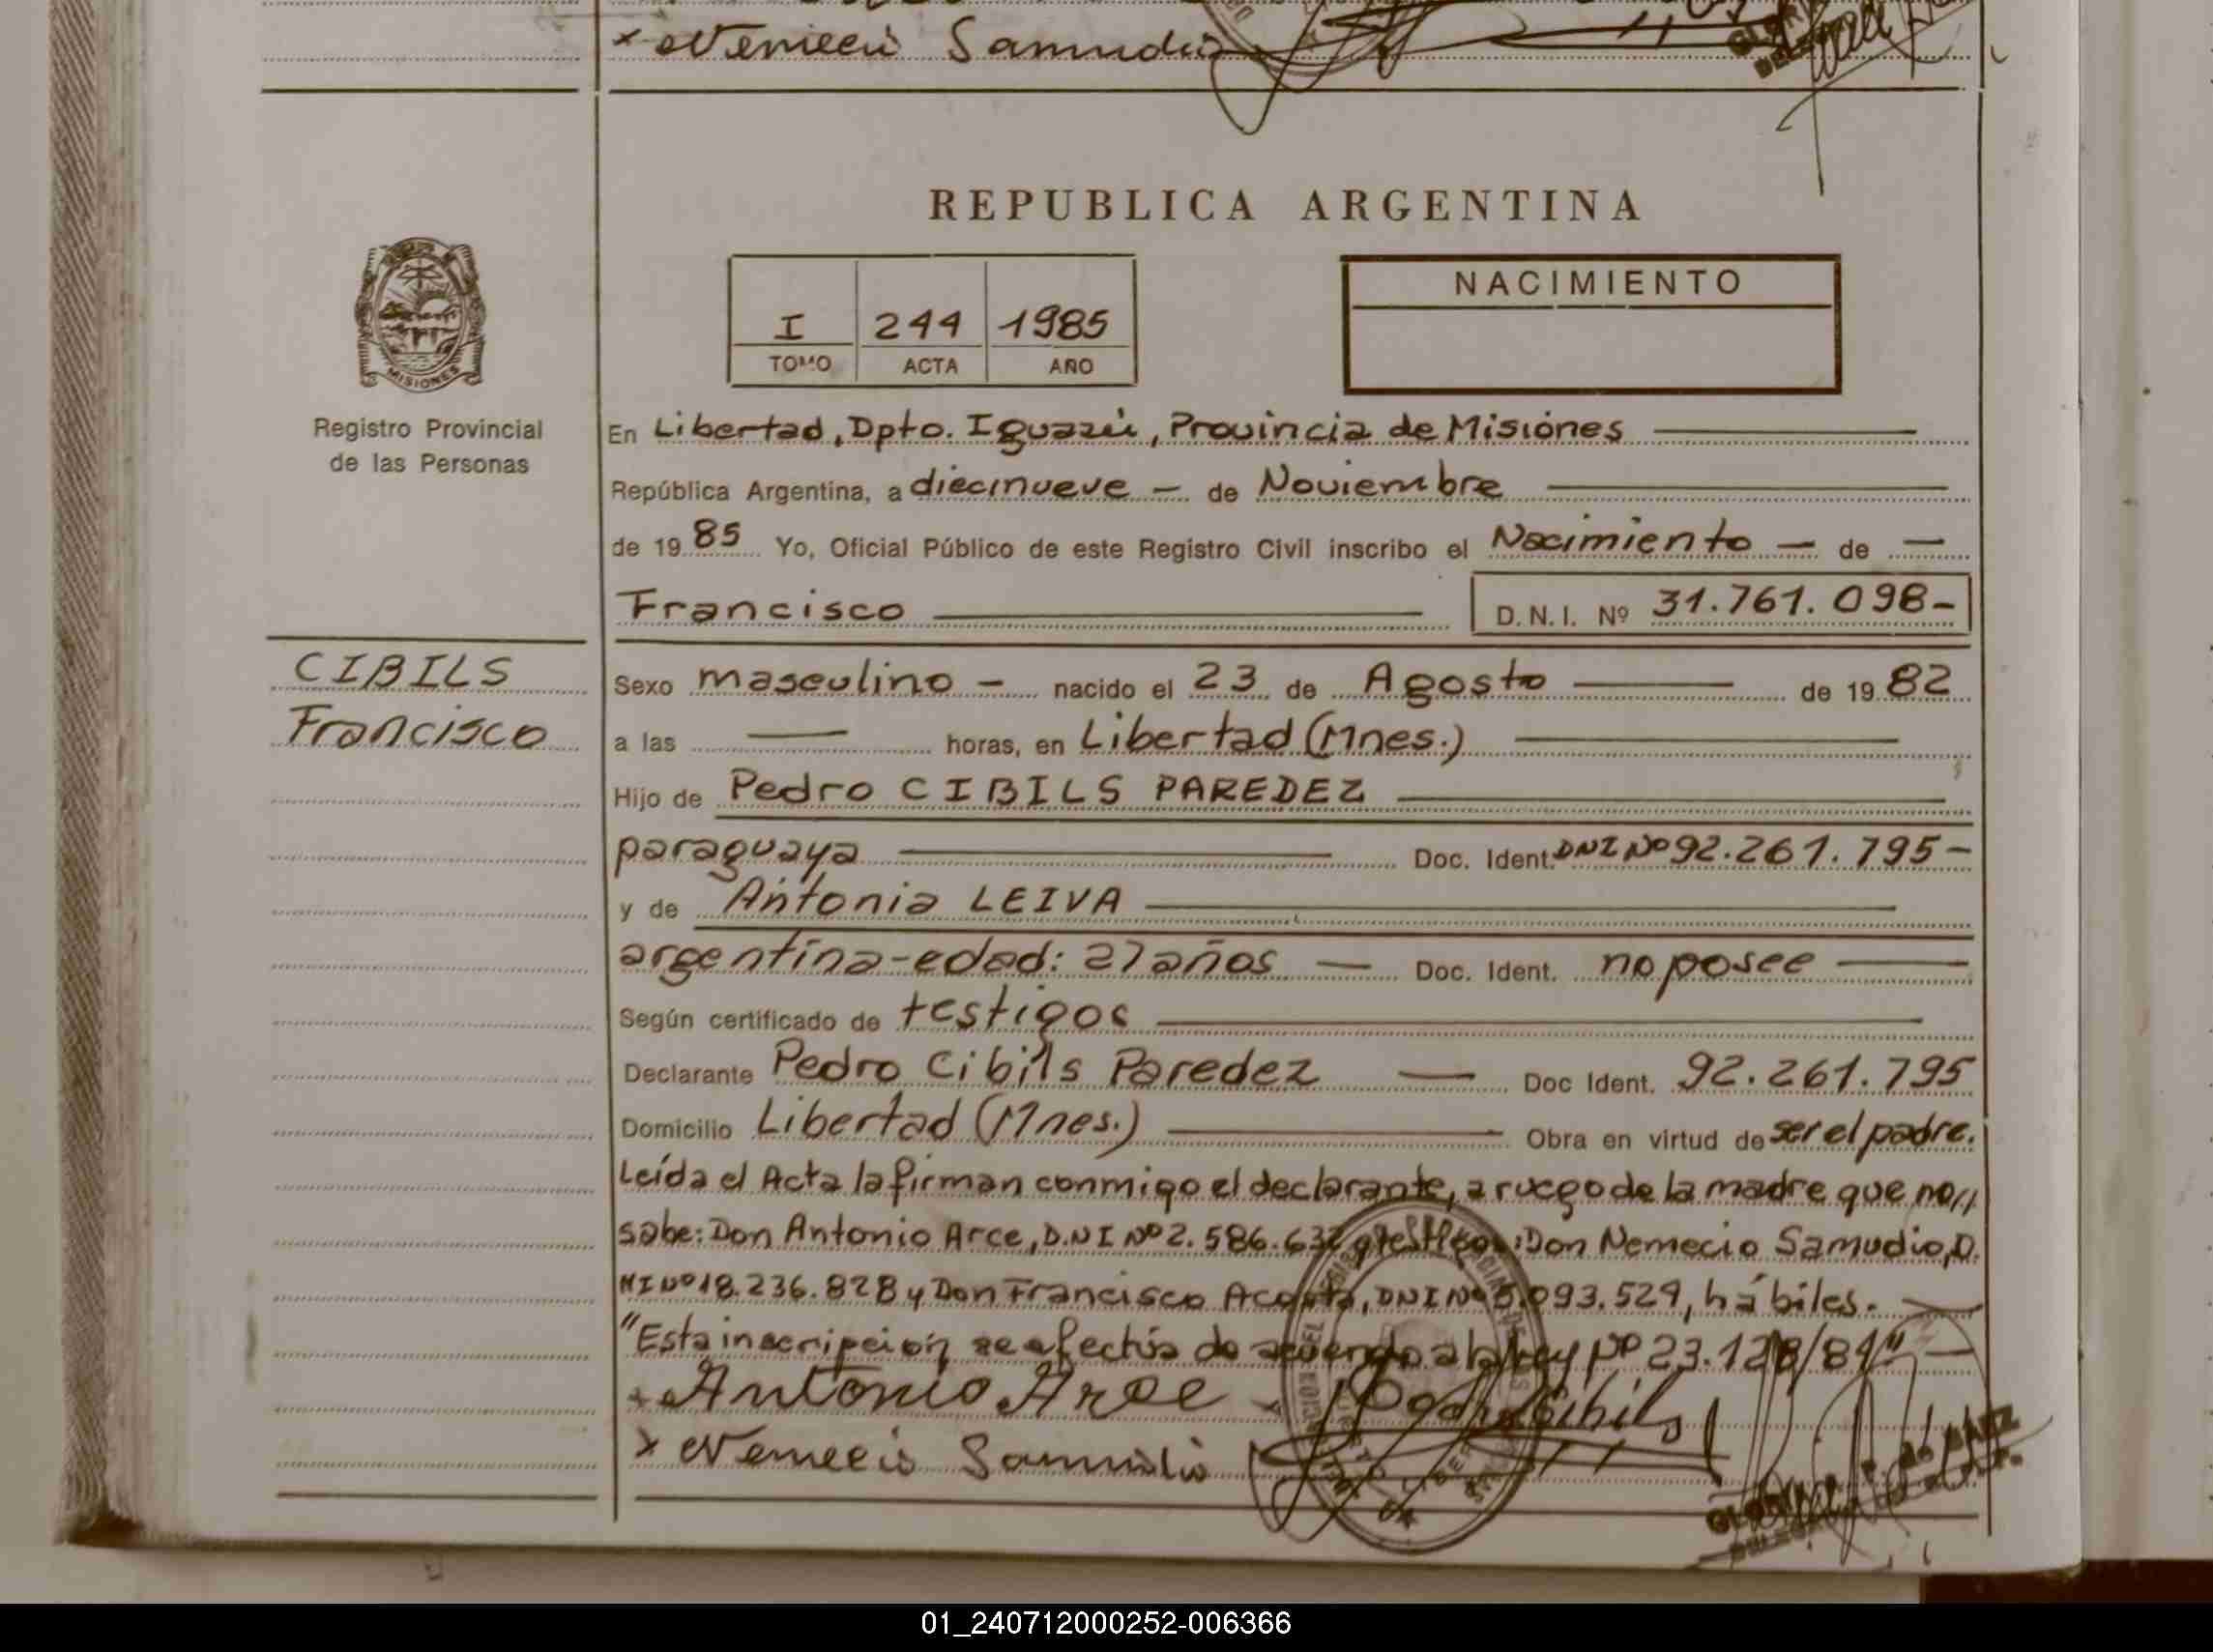 x Nemecio Samudio
REPUBLICA ARGENTINA
I 244 1985
TOMO ACTA AÑO
NACIMIENTO
MISIONES
Registro Provincial
de las Personas
En Libertad, Dpto. Iguazú, Provincia de Misiones
República Argentina, a diecinueve - de Noviembre
de 19 85 Yo, Oficial Público de este Registro Civil inscribo el Nacimiento - de -
Francisco D.N.I. Nº 31.761.098-
CIBILS
Francisco
Sexo masculino - nacido el 23 de Agosto de 19 82
a las horas, en Libertad (Mnes.)
Hijo de Pedro CIBILS PAREDEZ
paraguaya Doc. Ident. DNI Nº 92.261.795-
y de Antonia LEIVA
argentina-edad: 27 años - Doc. Ident. no posee
Según certificado de testigos
Declarante Pedro Cibils Paredez - Doc Ident. 92.261.795
Domicilio Libertad (Mnes.) Obra en virtud de ser el padre.
Leída el Acta la firman conmigo el declarante, a ruego de la madre que no//
sabe: Don Antonio Arce, D.N I Nº 2.586.632 y testigos: Don Nemecio Samudio, D.
NI Nº 18.236.828 y Don Francisco Acosta, DNI Nº 093.529, hábiles.
"Esta inscripción se efectúa de acuerdo a la Ley Nº 23.128/84"
x Antonio Arce x Pedro Cibils
x Nemecio Samudio
01_240712000252-006366